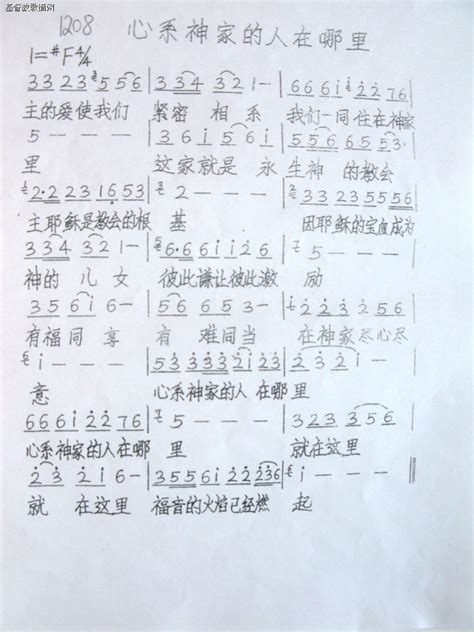 基督教歌谱网
1208 心系神家的人在哪里
1=#F4/4
3323 5556 | 334 321- | 666i 2276
主的爱使我们 紧密相系 我们一同住在神家
5--- | 36i5i6 | 556 65 53
里 这家就是永生神的教会
2·2231653 | 2--- | 33 23 5556
主耶稣是教会的根基 因耶稣的宝血成为
334 321- | 6·66i126 | 5---
神的儿女 彼此谦让彼此激励
3 56i6- | 56 65 3- | 22 23256
有福同享 有难同当 在神家尽心尽
i--- | 533332123 | 2321-
意 心系神家的人在哪里
666i 2276 | 5--- | 323 356
心系神家的人在哪里 就在这里
23 2i6- | 3556i22236 | i---
就在这里 福音的火焰已经燃起